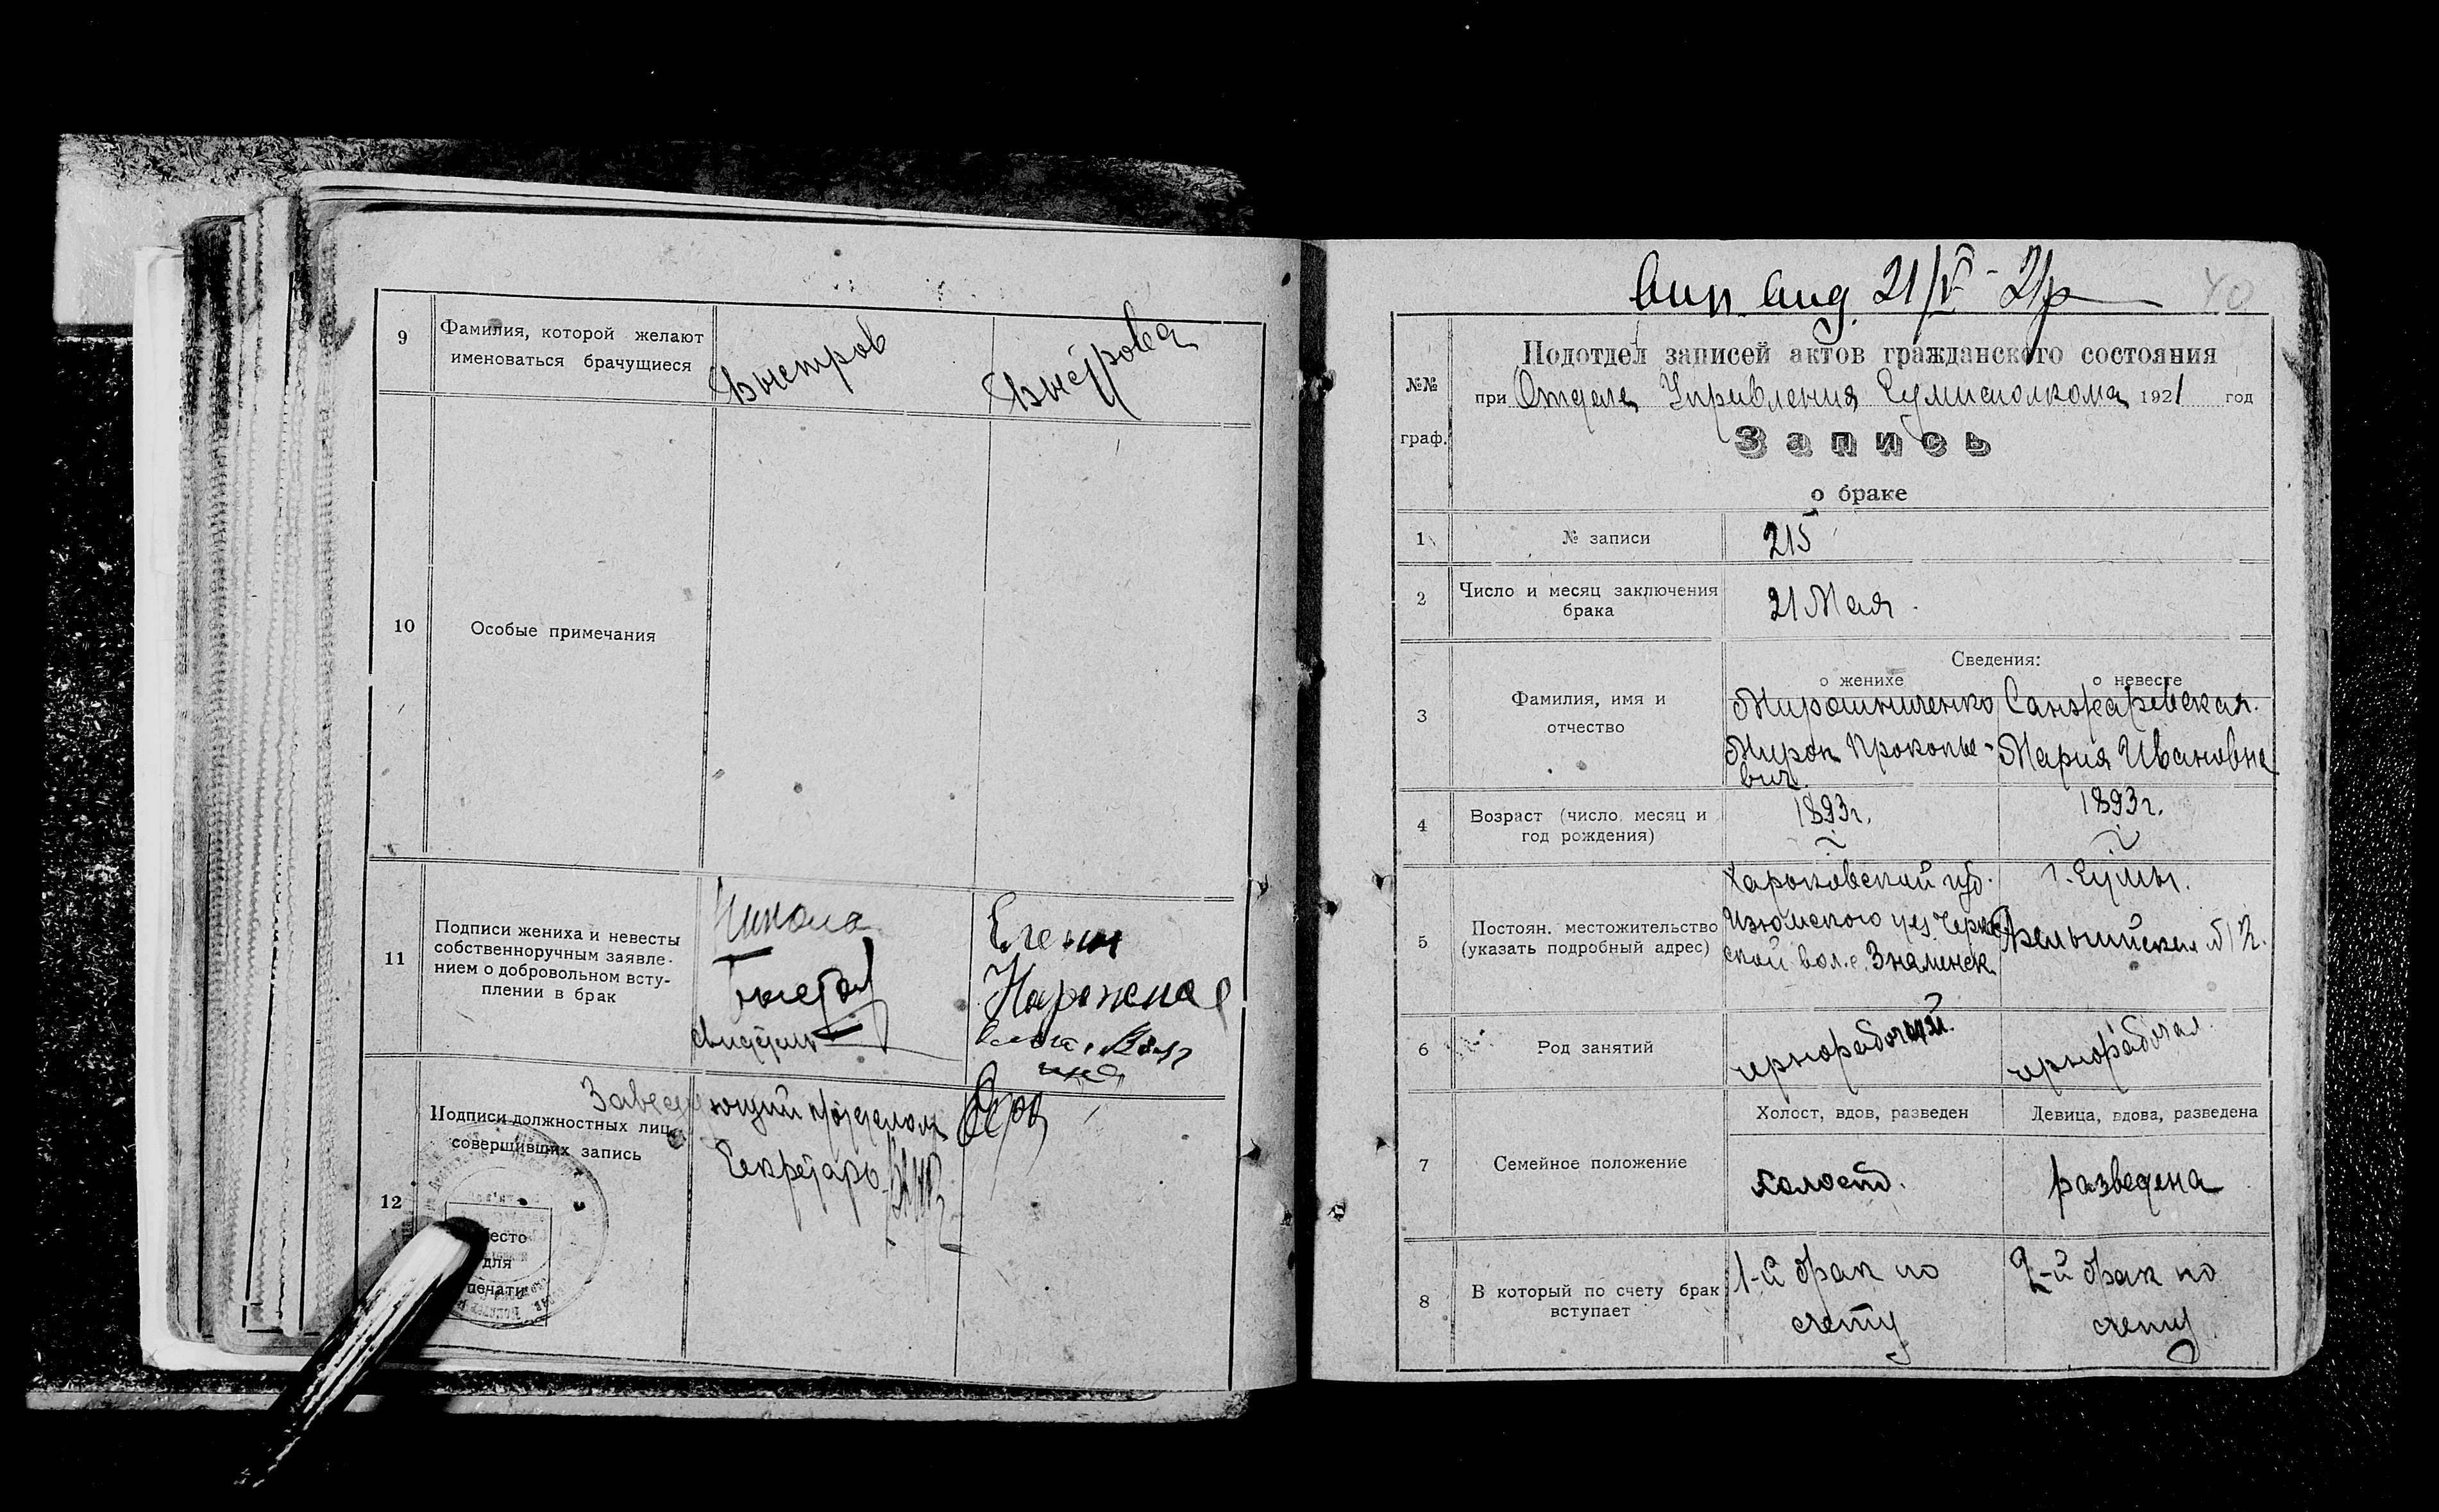 9
Фамилия, которой желают
именоваться брачущиеся
Быстров
Быстрова
10
Особые примечания
11
Подписи жениха и невесты
собственноручным заявле-
нием о добровольном всту-
плении в брак
Никола
Быстров
Елена
Нарожная
12
Подписи должностных лиц,
совершивших запись
Заведующий п/отделом
Секретарь
Место
для
печати
21/V - 21г
40
№№
граф.
Подотдел записей актов гражданского состояния
при Отделе Управления Сумисполкома 1921 год
Запись
о браке
1
№ записи
215
2
Число и месяц заключения
брака
21 Мая.
Сведения:
о женихе
о невесте
3
Фамилия, имя и
отчество
Мирошниченко
Мирон Прокопье-
вич.
Санжаревская.
Мария Ивановна
4
Возраст (число, месяц и
год рождения)
1893г.
1893г.
5
Постоян. местожительство
(указать подробный адрес)
Харьковской губ.
Изюмского уез. Черкас
ской вол. с. Знаменск.
г. Сумы.
№ 12.
6
Род занятий
чернорабочий.
чернорабочая.
7
Семейное положение
Холост, вдов, разведен
Девица, вдова, разведена
холост.
разведена
8
В который по счету брак
вступает
1-й брак по
счету
2-й брак по
счету